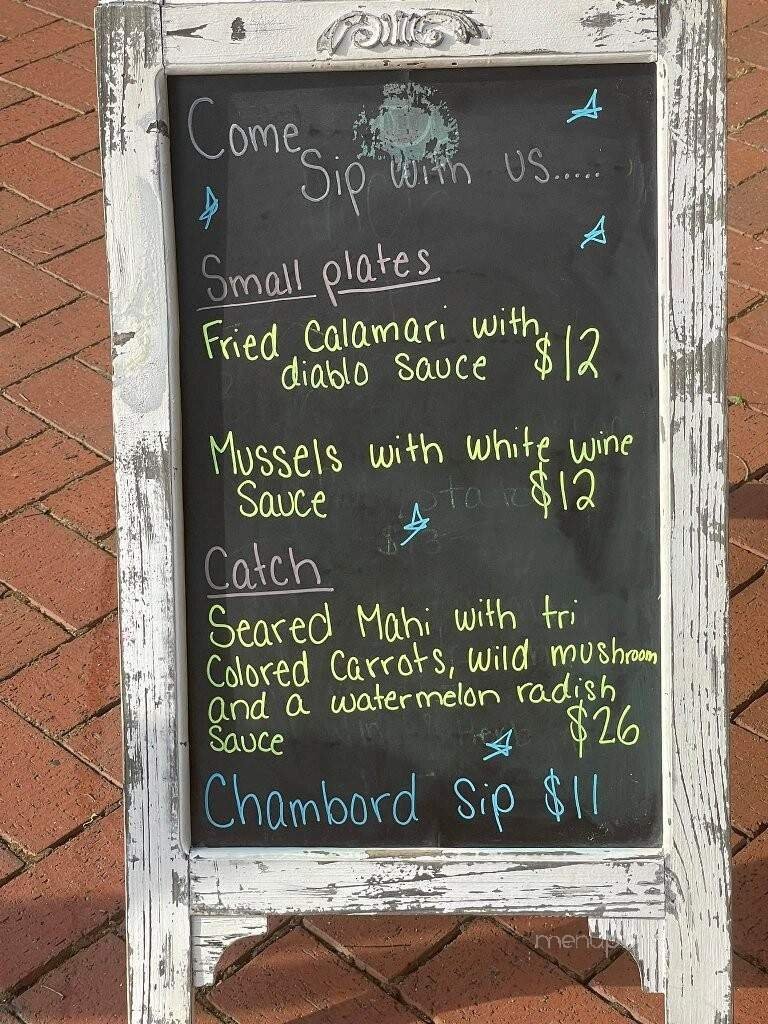 Come
Sip with us.....
Small plates
Fried Calamari with
diablo sauce $12
Mussels with white wine
Sauce $12
Catch
Seared Mahi with tri
Colored Carrots, wild mushroom
and a watermelon radish
Sauce $26
Chambord Sip $11